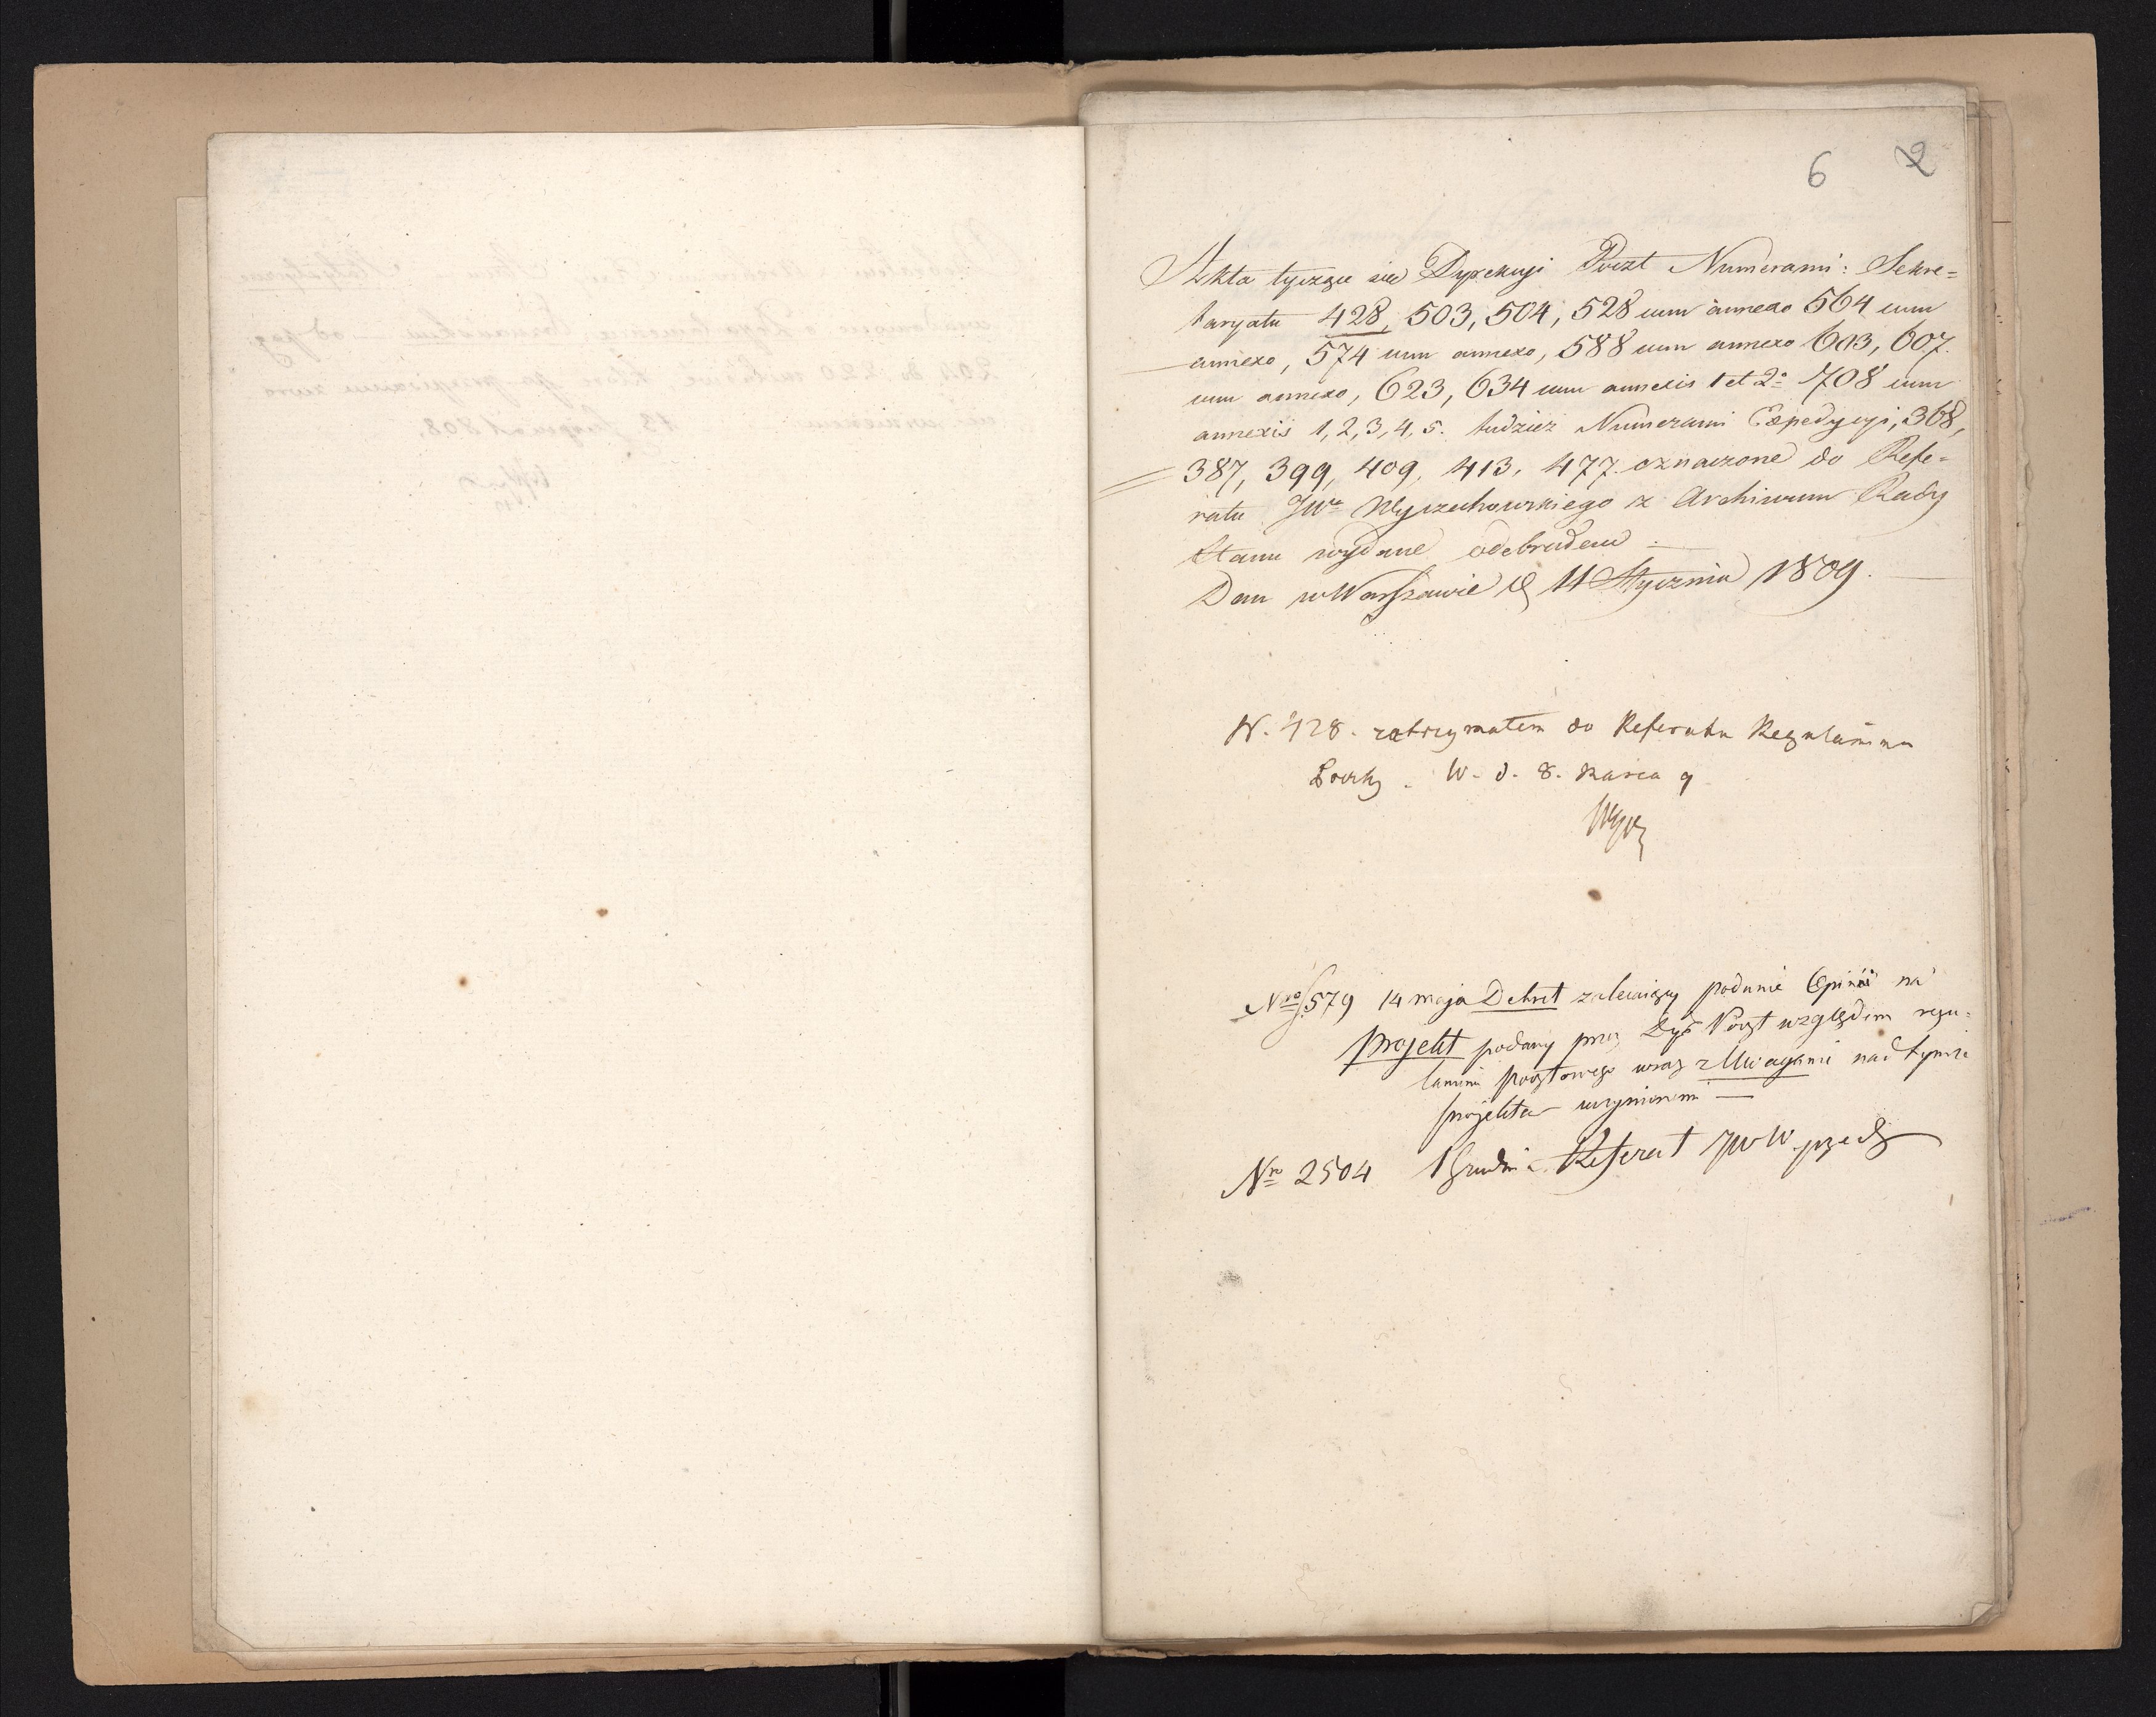 6 2
Akta tyczące się Dyrekcyi Poczt Numerami: Sekre=
taryatu 428, 503, 504, 528 cum annexo 564 cum
annexo, 574 cum annexo, 588 cum annexo 603, 607.
cum annexo, 623, 634 cum annexis 1 et 2º 708 cum
annexis 1, 2, 3, 4, 5. tudzież Numerami Expedycyi, 368,
387, 399, 409, 413, 477. oznaczone do Refe=
ratu JWº Wyczechowskiego z Archiwum Rady
Stanu wydane odebrałem.
Dan w Warszawie d 11 Stycznia 1809.
N. 428. zatrzymałem do Referatu Regulaminu
Poczty. W. d. 8. Marca 9
Nro 579 14 maja Dekret zalecaiący podanie Opinii na
projekt podany przez Dyr Poczt względem regu=
laminu pocztowego wraz z Uwagami nad tymże
projektem uczynionemi —
Nro 2504 1 Grudnia Referat JW W